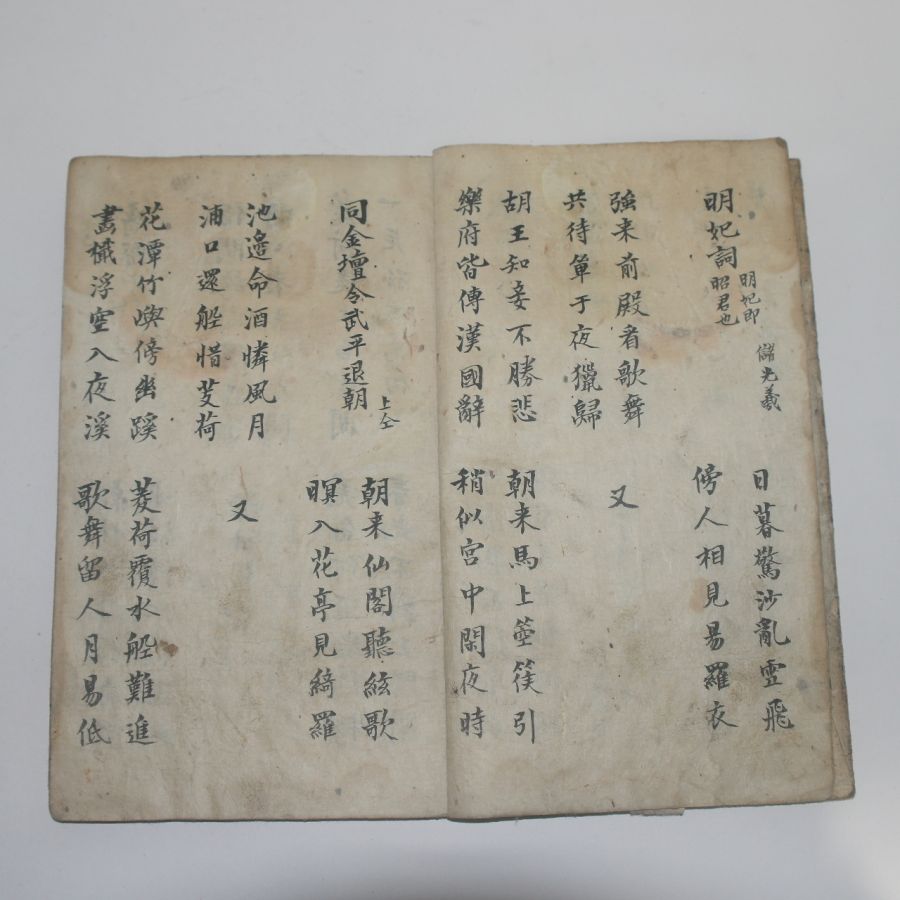 明妃詞
明妃即
昭君也
儲光羲
日暮驚沙亂雪飛
傍人相見易羅衣
強来前殿者歌舞
共待单于夜獵歸
又
胡王知妾不勝悲
樂府皆傳漢國辭
朝来馬上箜篌引
稍似宮中閑夜時
同金壇令武平退朝
上仝
朝来仙閣聽絃歌
暝入花亭見綺羅
池邉命酒憐風月
浦口還船惜芰荷
又
花潭竹嶼傍幽蹊
畫檝浮空入夜溪
菱荷覆水船難進
歌舞留人月易低